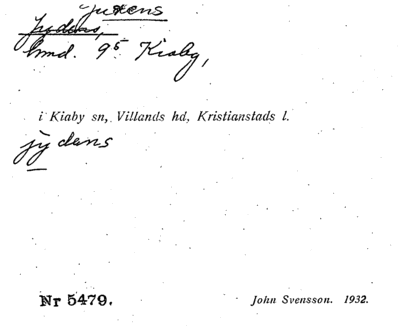 Juxens
Jydens,
hmd. 9⁵ Kiaby,
i Kiaby sn, Villands hd, Kristianstads l.
jy̆dens
Nr 5479.
John Svensson. 1932.